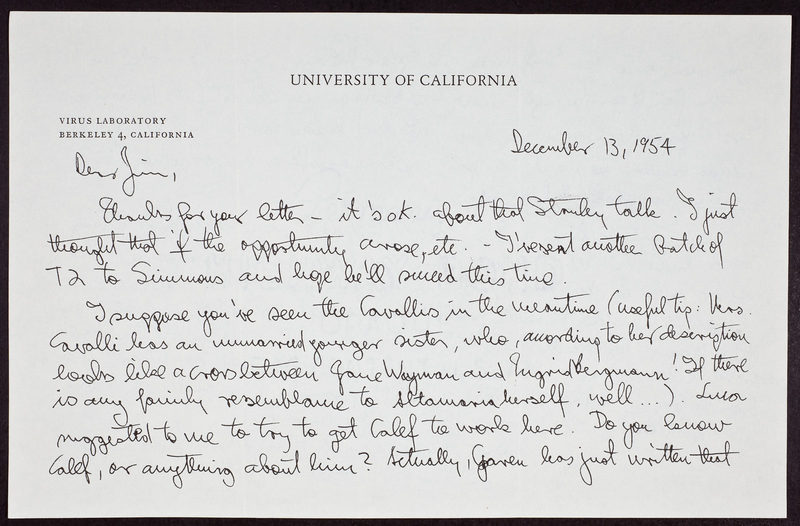 UNIVERSITY OF CALIFORNIA
VIRUS LABORATORY
BERKELEY 4, CALIFORNIA
December 13, 1954
Dear Jim,
Thanks for your letter – it's ok. about that Stanley talk. I just
thought that if the opportunity arose, etc. – I've sent another batch of
T2 to Simmons and hope he'll succeed this time.
I suppose you've seen the Cavallis in the meantime (useful tip: Mrs.
Cavalli has an unmarried younger sister, who, according to her description
looks like a cross between Jane Wayman and Ingrid Bergmann! If there
is any family resemblance to Altamaria herself, well ...). Luca
suggested to me to try to get Calef to work here. Do you know
Calef, or anything about him? Actually, Garen has just written that